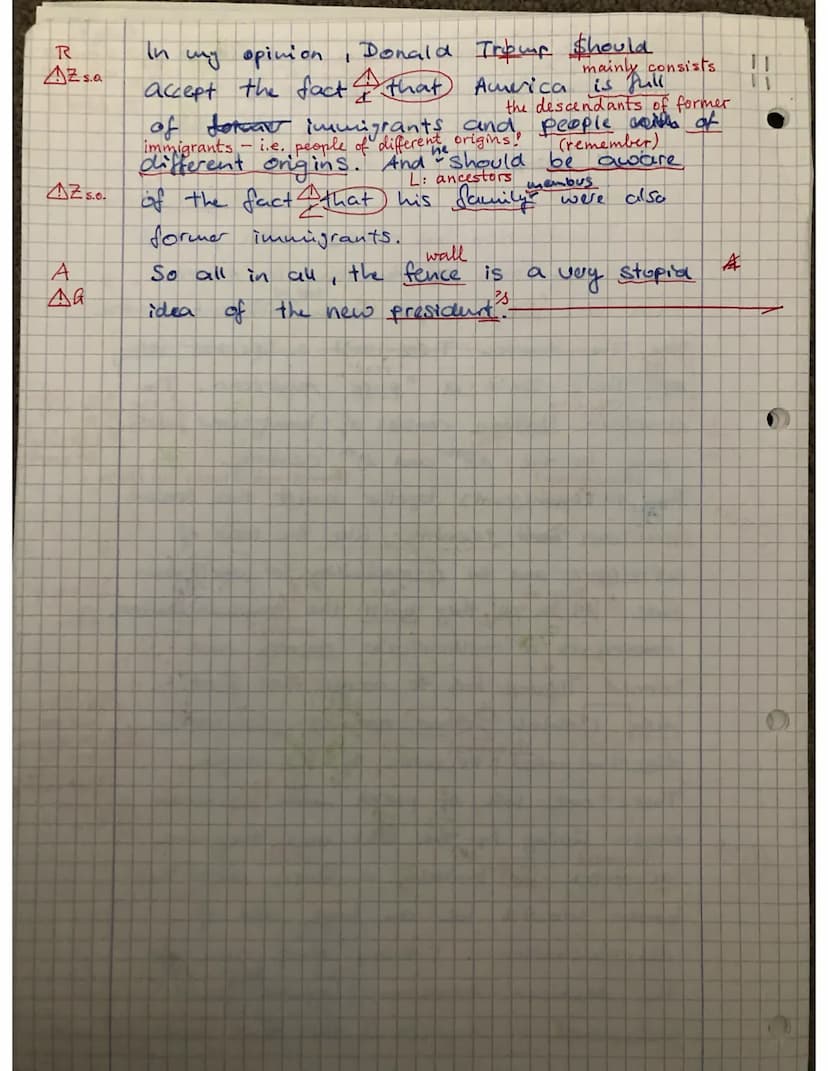 R In my opinion, Donald Trump should
mainly consists
⚠Z s.o. accept the fact ⚠ that America is full
the descendants of former
of immigrants and people of
immigrants – i.e. people of different origins! he (remember)
different origins. And should be aware
L: ancestors members
⚠Z s.o. of the fact ⚠ that his family were also
former immigrants.
wall
A So all in all, the fence is a very stupid A
⚠G idea of the new president's.